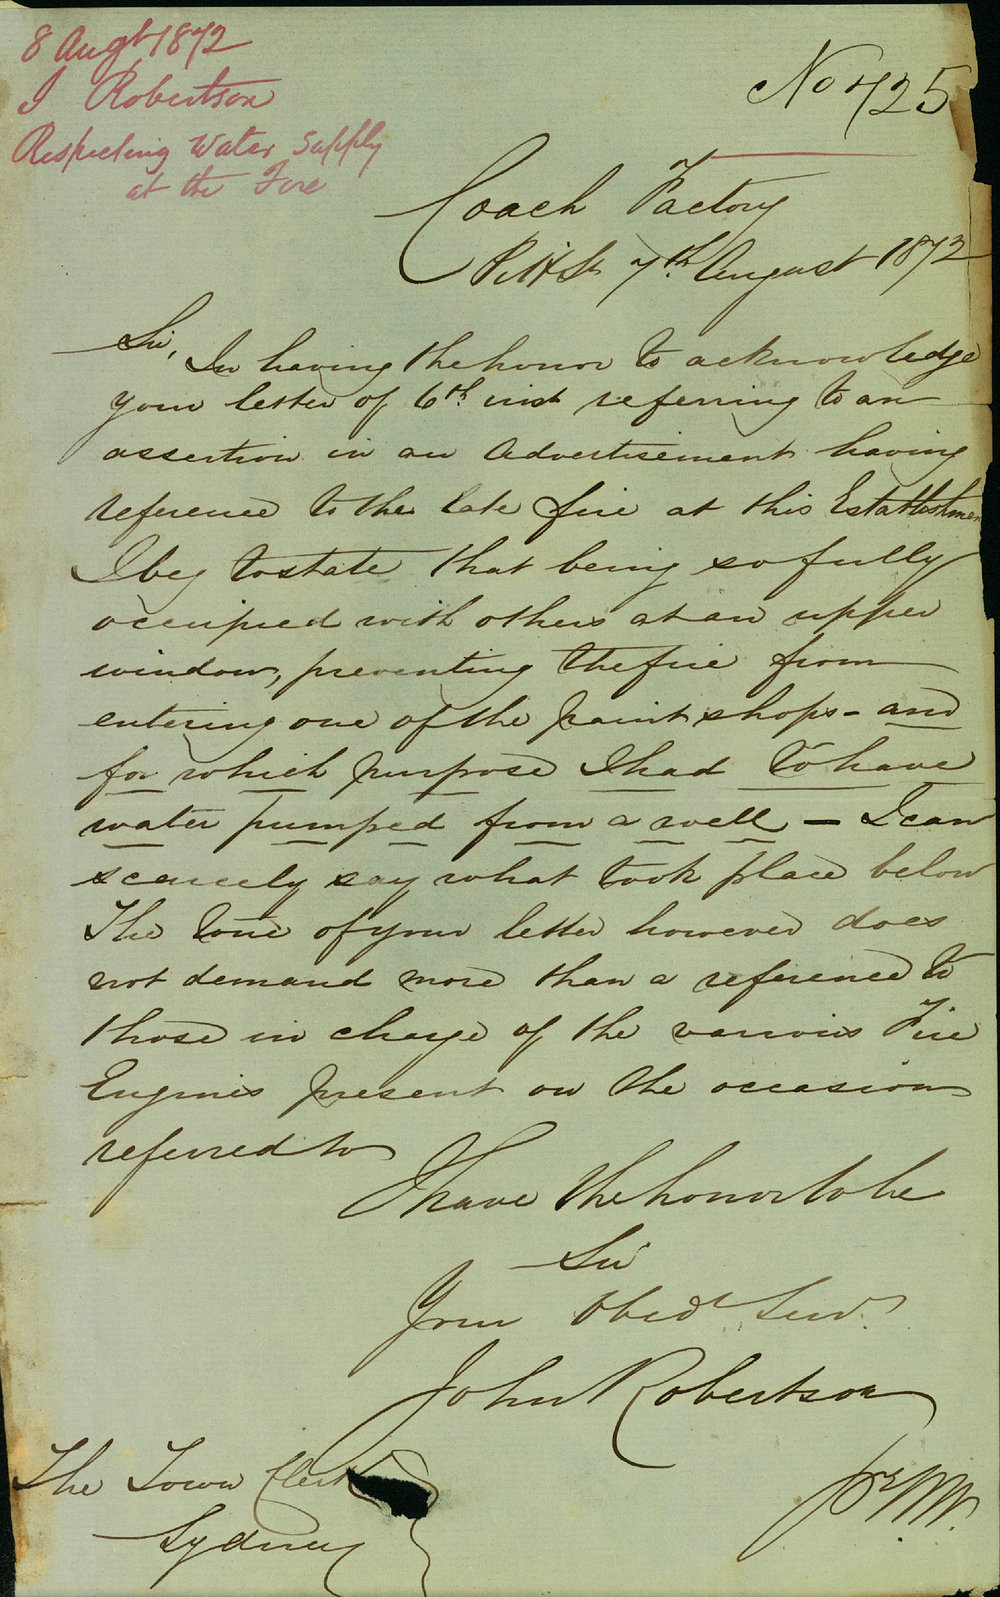 8 Augt 1872
J Robertson
Respecting Water Supply
at the Fire
No 725
Coach Factory
Pitt St 7th August 1872
Sir,
In having the honor to acknowledge
your letter of 6th inst referring to an
assertion in an Advertisement having
reference to the late fire at this Establishmen
I beg to state that being so fully
occupied with others at an upper
window, preventing the fire from
entering one of the paint shops - and
for which purpose I had to have
water pumped from a well - I can
scarcely say what took place below
The tone of your letter however does
not demand more than a reference to
those in charge of the various Fire
Engines present on the occasion
referred to
I have the honor to be
Sir
Your Obedt Servt
John Robertson
pr W.W.
The Town Clerk
Sydney